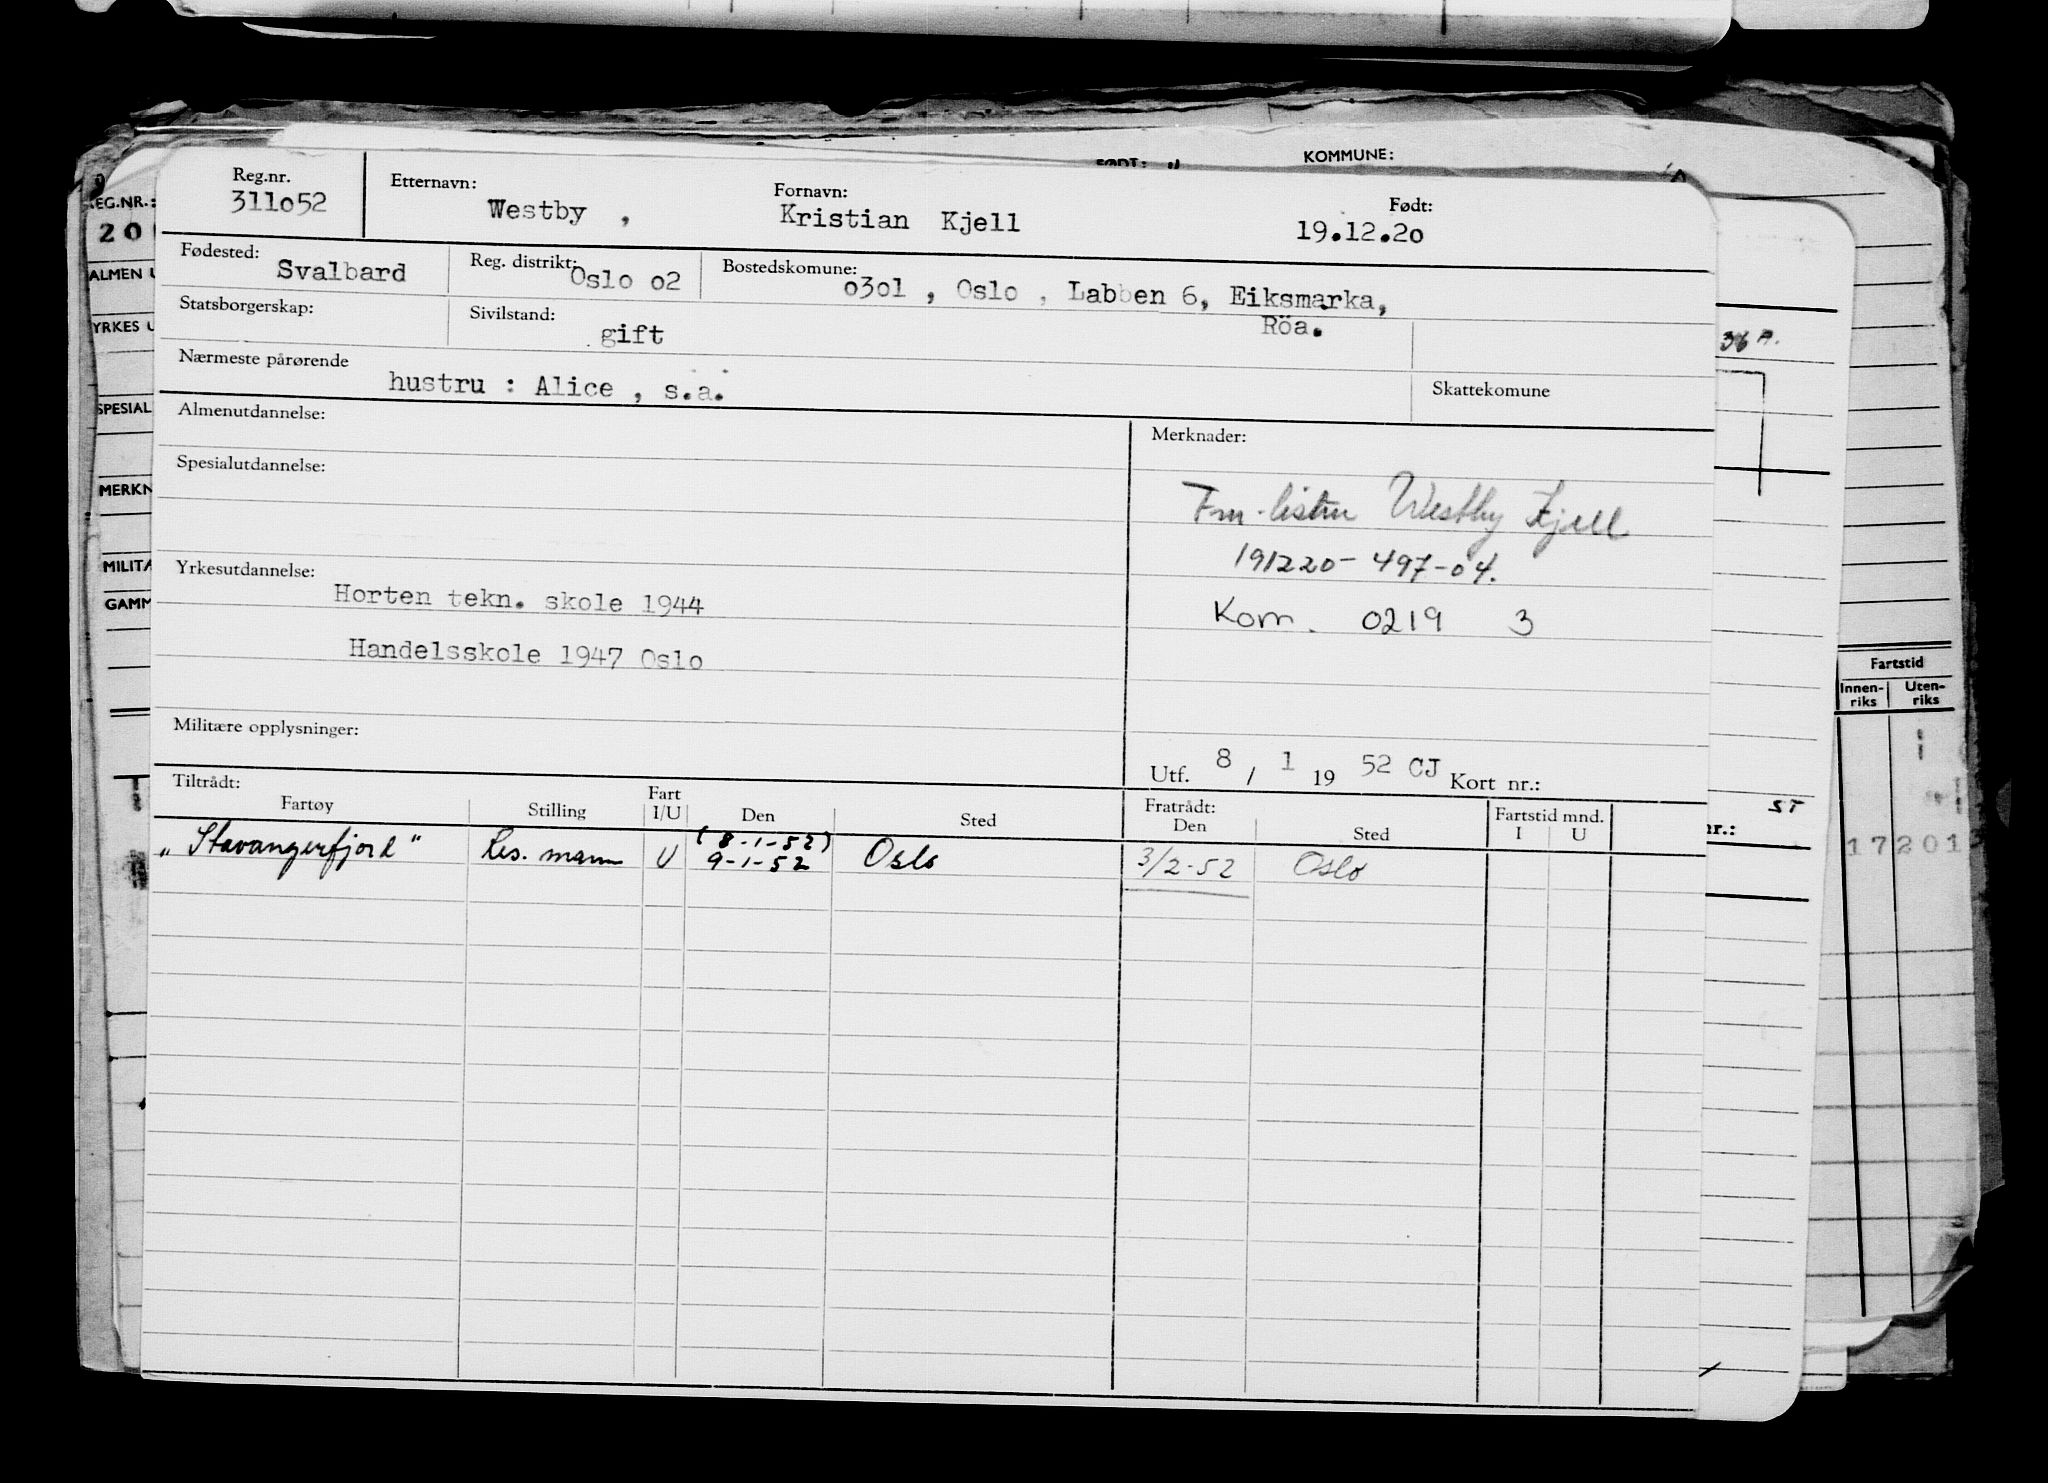 KOMMUNE:
EG.NR.:
20
ALMEN U
YRKES U
SPESIAL
MERKN
MILITÆ
GAMM
Reg.nr. Etternavn: Fornavn: Født:
311o52 Westby , Kristian Kjell 19.12.2o
Fødested: Reg. distrikt: Bostedskomune:
Svalbard Oslo o2 o3o1 , Oslo , Labben 6, Eiksmarka,
Röa.
Statsborgerskap: Sivilstand:
gift
Nærmeste pårørende
hustru : Alice , s.a. Skattekomune
Almenutdannelse: Merknader:
Spesialutdannelse:
Fm-listen Westby Kjell
191220-497-04.
Kom. 0219 3
Yrkesutdannelse:
Horten tekn. skole 1944
Handelsskole 1947 Oslo
Militære opplysninger:
Utf. 8 / 1 19 52 CJ Kort nr.:
Tiltrådt: Fratrådt:
Fartøy Stilling Fart I/U Den Sted Den Sted Fartstid mnd. I U
(8-1-52)
„Stavangerfjord" Res. mann U 9-1-52 Oslo 3/2-52 Oslo
36 A.
ST
nr.:
Fartstid
Innen-riks Uten-riks
17201